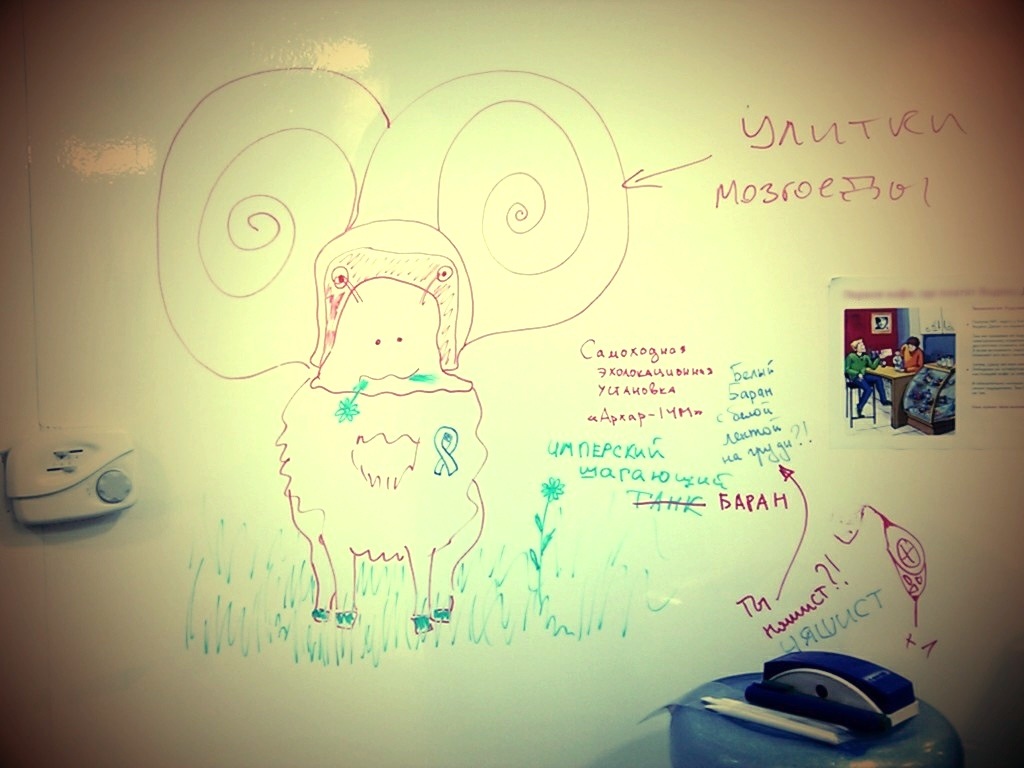 улитки
мозгоеды
Самоходная
эхолокационная
установка
«Архар-14М»
Белый
Баран
с белой
лентой
на груди?!
имперский
шагающий
ТАНК БАРАН
ТЫ
няшист?!
НЯШИСТ
+1